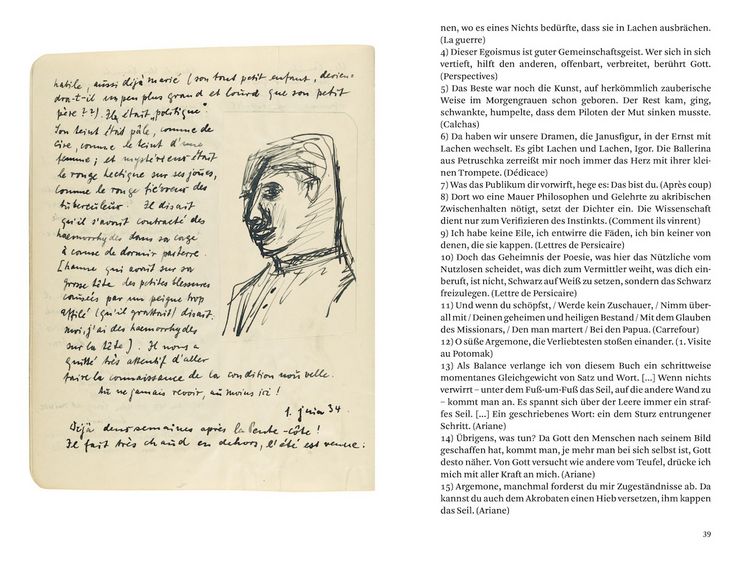 habile, aussi déjà marié (son tout petit enfant, devien-
dra-t-il un peu plus grand et lourd que son petit
père ??). Il était „politique".
Son teint était pâle, comme de
cire, comme le teint d'une
femme; et mystérieux était
le rouge hectique sur ses joues,
comme le rouge fiévreux des
tuberculeux. Il disait
qu'il s'avoit contracté des
haemorrhydes dans sa cage
à cause de dormir par terre.
[hanne qui avoit sur sa
grosse tête des petites blessures
causées par un peigne trop
affilé (qu'il grattait) disait:
moi, j'ai des haemorrhydes
sur la tête]. Il nous a
quitté très attentif d'aller
faire la connaissance de la condition nouvelle.
Au ne jamais revoir, au moins ici!
1. juin 34.
Déjà deux semaines après la Pente-côte!
Il fait très chaud en dehors, l'été est venue:
nen, wo es eines Nichts bedürfte, dass sie in Lachen ausbrächen.
(La guerre)
4) Dieser Egoismus ist guter Gemeinschaftsgeist. Wer sich in sich
vertieft, hilft den anderen, offenbart, verbreitet, berührt Gott.
(Perspectives)
5) Das Beste war noch die Kunst, auf herkömmlich zauberische
Weise im Morgengrauen schon geboren. Der Rest kam, ging,
schwankte, humpelte, dass dem Piloten der Mut sinken musste.
(Calchas)
6) Da haben wir unsere Dramen, die Janusfigur, in der Ernst mit
Lachen wechselt. Es gibt Lachen und Lachen, Igor. Die Ballerina
aus Petruschka zerreißt mir noch immer das Herz mit ihrer klei-
nen Trompete. (Dédicace)
7) Was das Publikum dir vorwirft, hege es: Das bist du. (Après coup)
8) Dort wo eine Mauer Philosophen und Gelehrte zu akribischen
Zwischenhalten nötigt, setzt der Dichter ein. Die Wissenschaft
dient nur zum Verifizieren des Instinkts. (Comment ils vinrent)
9) Ich habe keine Eile, ich entwirre die Fäden, ich bin keiner von
denen, die sie kappen. (Lettres de Persicaire)
10) Doch das Geheimnis der Poesie, was hier das Nützliche vom
Nutzlosen scheidet, was dich zum Vermittler weiht, was dich ein-
beruft, ist nicht, Schwarz auf Weiß zu setzen, sondern das Schwarz
freizulegen. (Lettre de Persicaire)
11) Und wenn du schöpfst, / Werde kein Zuschauer, / Nimm über-
all mit / Deinen geheimen und heiligen Bestand / Mit dem Glauben
des Missionars, / Den man martert / Bei den Papua. (Carrefour)
12) O süße Argemone, die Verliebtesten stoßen einander. (1. Visite
au Potomak)
13) Als Balance verlange ich von diesem Buch ein schrittweise
momentanes Gleichgewicht von Satz und Wort. [...] Wenn nichts
verwirrt – unter dem Fuß-um-Fuß das Seil, auf die andere Wand zu
– kommt man an. Es spannt sich über der Leere immer ein straf-
fes Seil. [...] Ein geschriebenes Wort: ein dem Sturz entrungener
Schritt. (Ariane)
14) Übrigens, was tun? Da Gott den Menschen nach seinem Bild
geschaffen hat, kommt man, je mehr man bei sich selbst ist, Gott
desto näher. Von Gott versucht wie andere vom Teufel, drücke ich
mich mit aller Kraft an mich. (Ariane)
15) Argemone, manchmal forderst du mir Zugeständnisse ab. Da
kannst du auch dem Akrobaten einen Hieb versetzen, ihm kappen
das Seil. (Ariane)
39